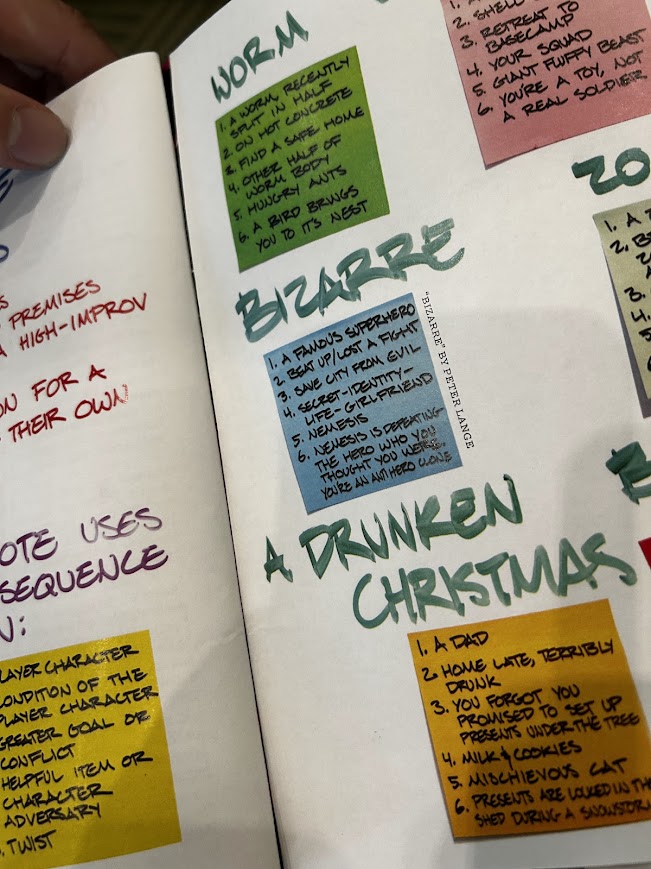 PREMISES
HIGH-IMPROV
ON FOR A
THEIR OWN
OTE USES
SEQUENCE
N:
LAYER CHARACTER
CONDITION OF THE
PLAYER CHARACTER
GREATER GOAL OR
CONFLICT
HELPFUL ITEM OR
CHARACTER
ADVERSARY
TWIST
WORM
1. A WORM RECENTLY
SPLIT IN HALF
2. ON HOT CONCRETE
3. FIND A SAFE HOME
4. OTHER HALF OF
WORM BODY
5. HUNGRY ANTS
6. A BIRD BRINGS
YOU TO IT'S NEST
2. SHELL
3. RETREAT TO
BASECAMP
4. YOUR SQUAD
5. GIANT FLUFFY BEAST
6. YOU'RE A TOY, NOT
A REAL SOLDIER
BIZARRE
1. A FAMOUS SUPERHERO
2. BEAT UP/LOST A FIGHT
3. SAVE CITY FROM EVIL
4. SECRET-IDENTITY-
LIFE-GIRLFRIEND
5. NEMESIS
6. NEMESIS IS DEFEATING
THE HERO WHO YOU
THOUGHT YOU WERE.
YOU'RE AN ANTI HERO CLONE
"BIZARRE" BY PETER LANGE
ZO
1. A
2. BE
3.
4.
5
A DRUNKEN
CHRISTMAS
1. A DAD
2. HOME LATE, TERRIBLY
DRUNK
3. YOU FORGOT YOU
PROMISED TO SET UP
PRESENTS UNDER THE TREE
4. MILK & COOKIES
5. MISCHIEVOUS CAT
6. PRESENTS ARE LOCKED IN THE
SHED DURING A SNOWSTORM
B